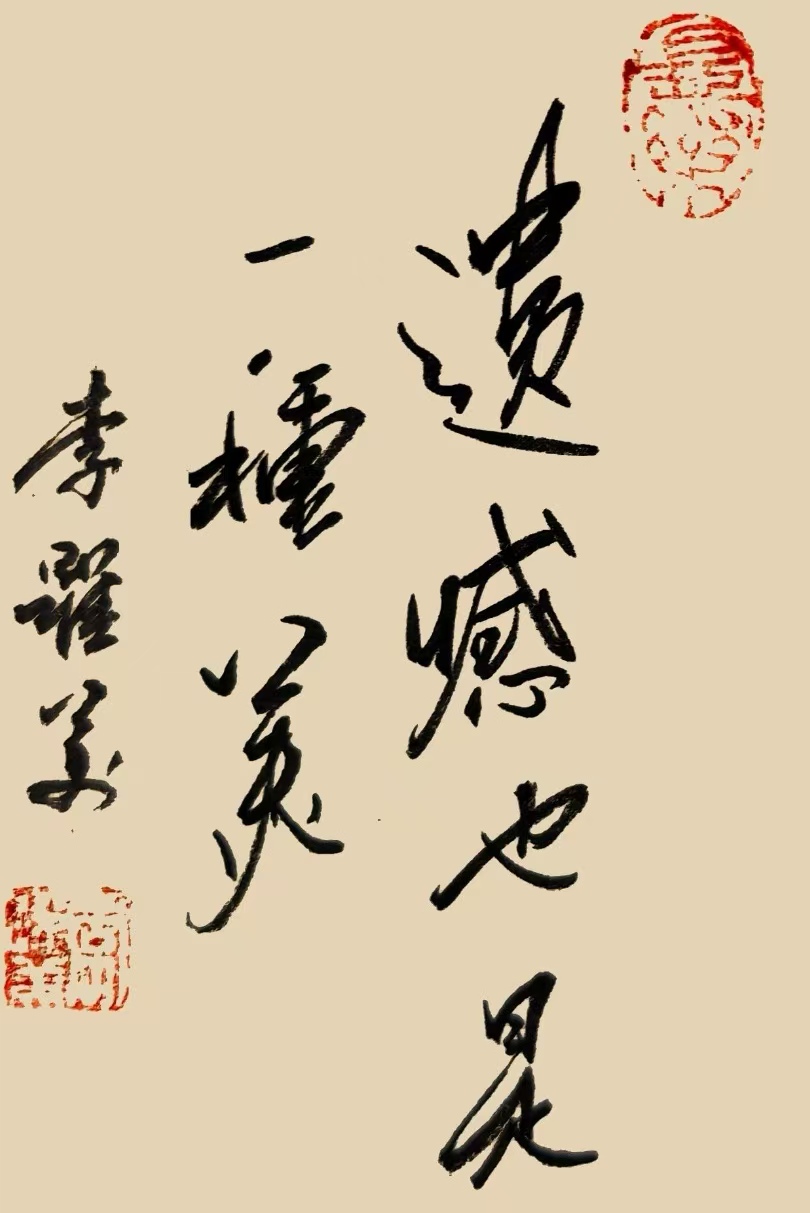 遺憾也是
一種美
李